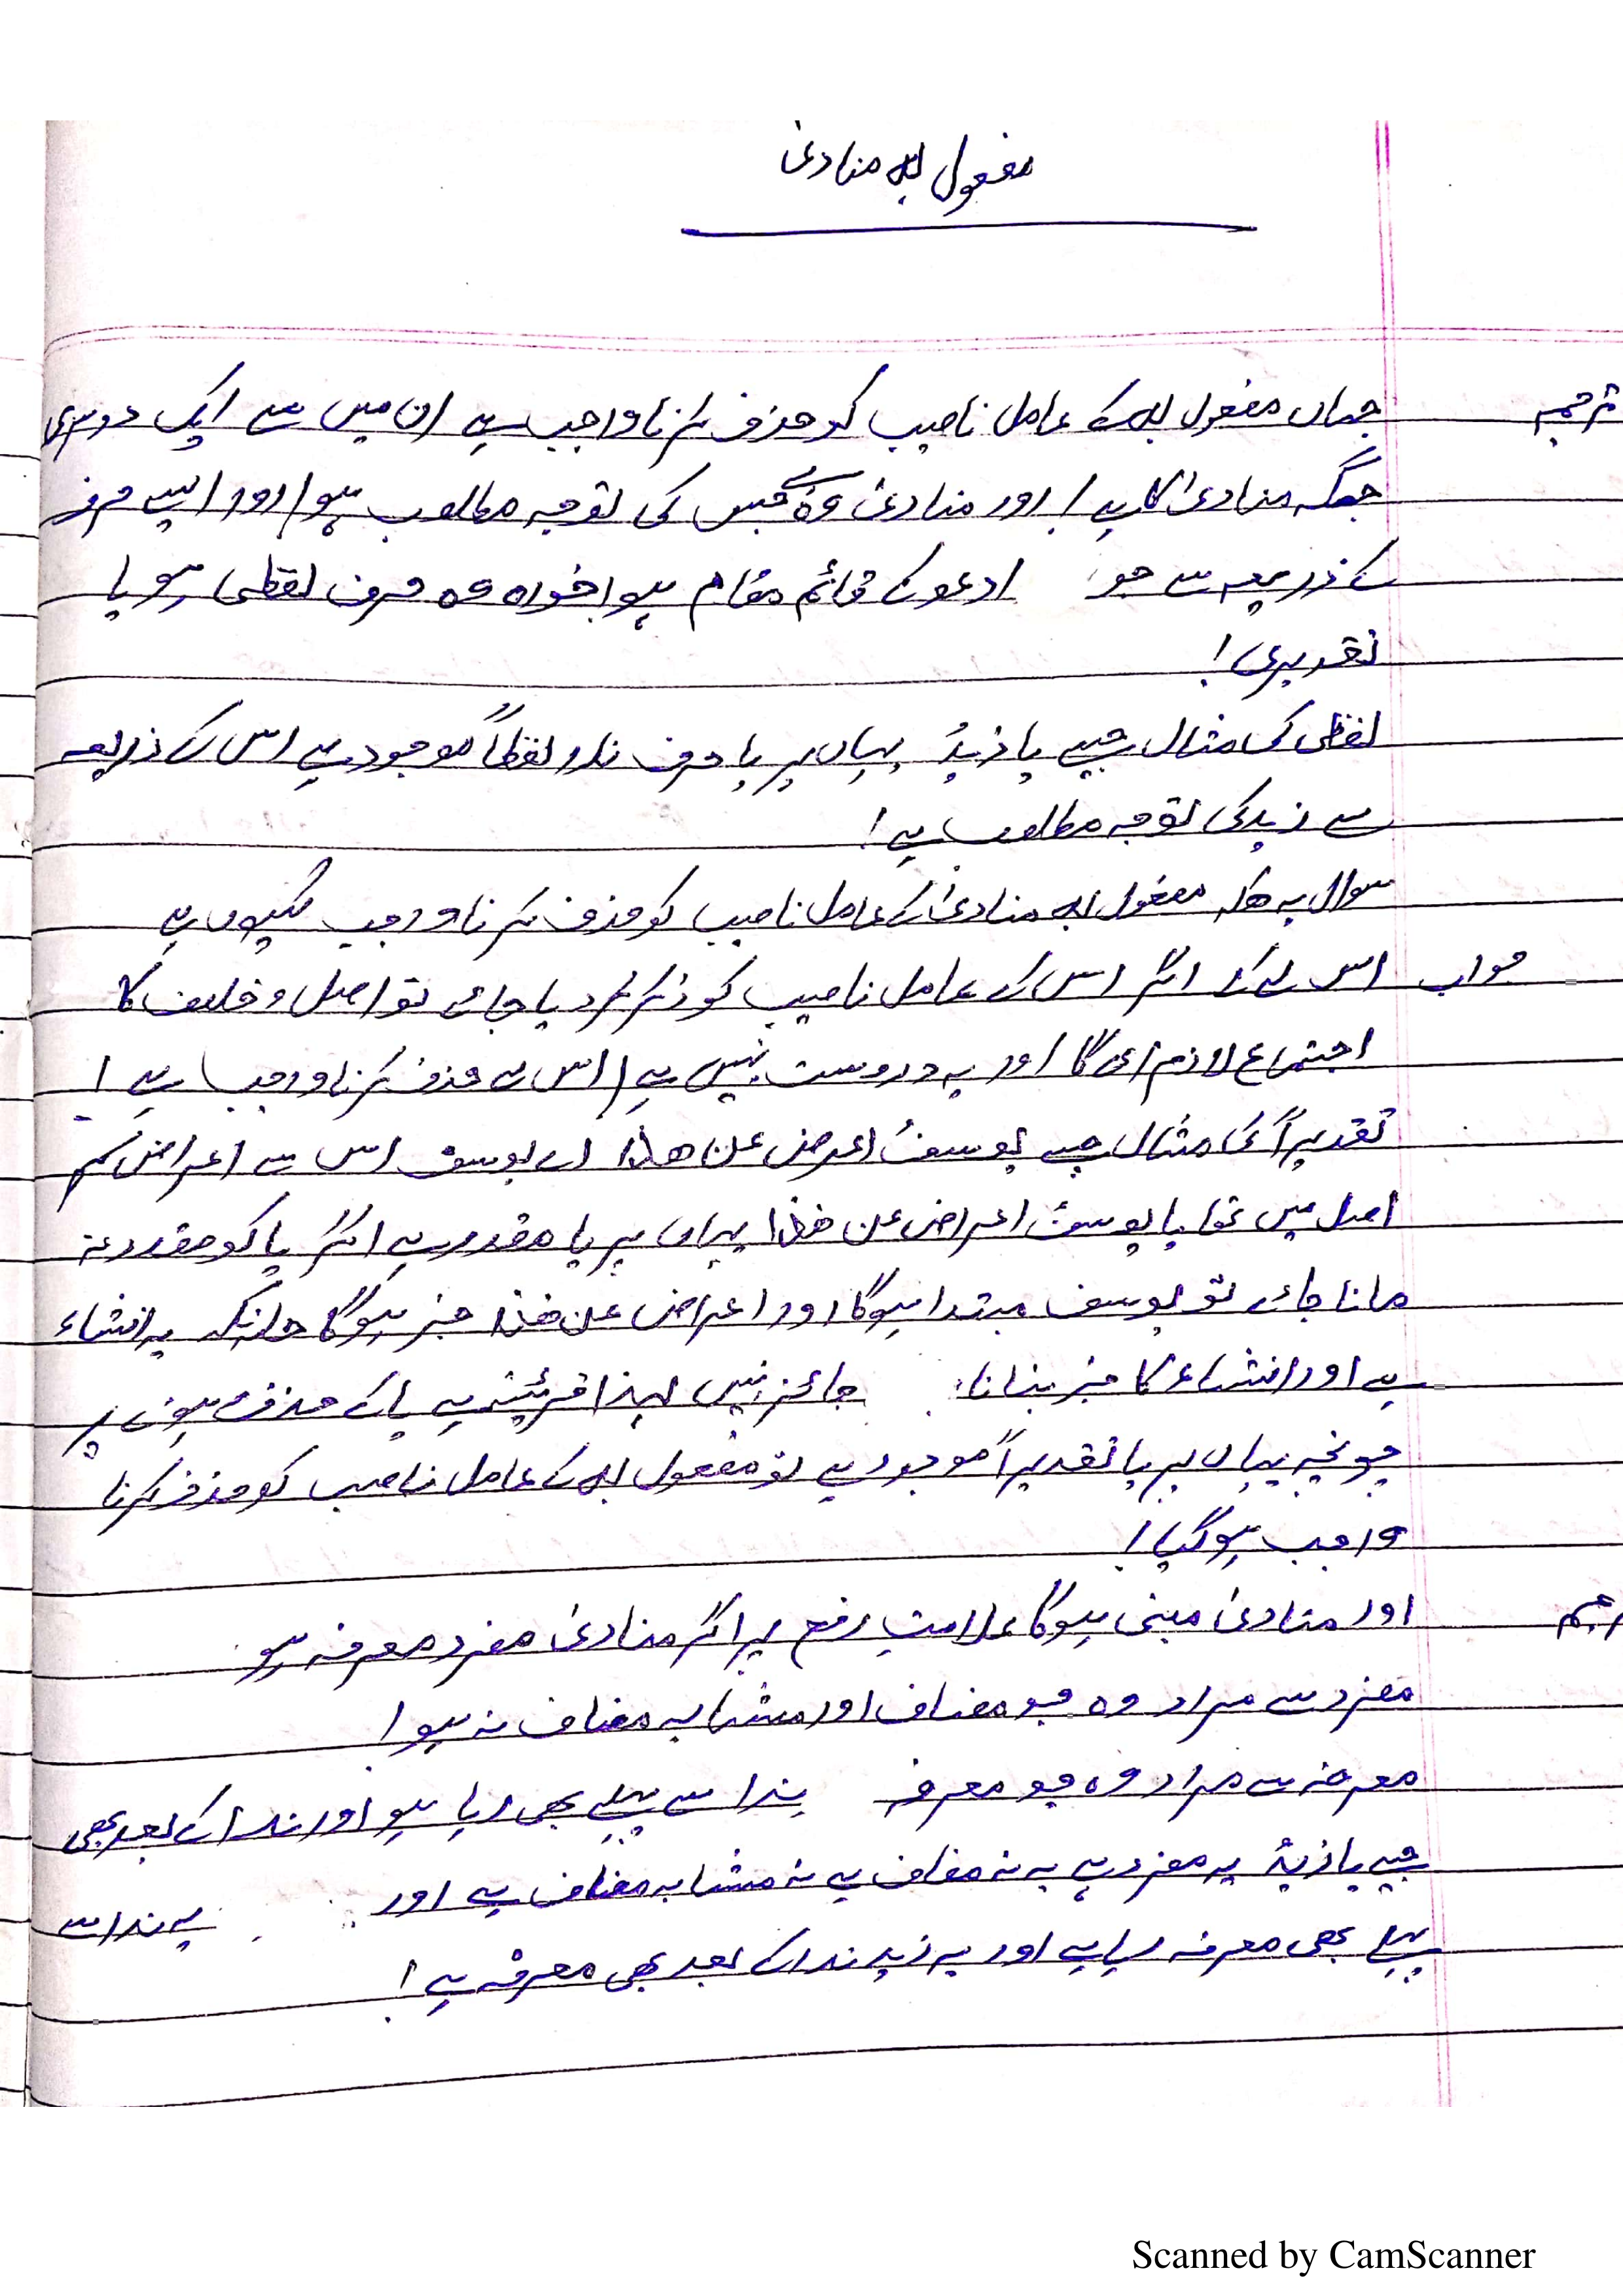 مفعول بہ منادیٰ
ترجمہ جہاں مفعول بہ کے عامل ناصب کو حذف کرنا واجب ہے ان میں سے ایک دوسری
جگہ منادیٰ کا ہے ! اور منادیٰ وہ ہے جس کی توجہ مطلوب ہو ! اور ایسے حرف
کے ذریعہ سے جو ادعو کے قائم مقام ہو ! خواہ وہ حرف لفظی ہو یا
تقدیری !
لفظی کی مثال جیسے یا زیدُ یہاں پر یا حرف ندا لفظاً موجود ہے اس کے ذریعہ
سے زید کی توجہ مطلوب ہے !
سوال یہ ھیکہ مفعول بہ منادیٰ کے عامل ناصب کو حذف کرنا واجب کیوں ہے
جواب اس لئے کہ اگر اس کے عامل ناصب کو ذکر کر دیا جائے تو اصل و خلاف کا
اجتماع لازم ای گا اور یہ دروست نہیں ہے ! اس لئے حذف کرنا واجب ہے !
تقدیراً کی مثال جیسے یوسفُ اعرض عن ھذا اے یوسف اس سے اعراض کر
اصل میں تھا یا یوسفُ اعراض عن ھذا یہاں پر یا مقدر ہے اگر یا کو مقدر نہ
مانا جائے تو یوسف مبتدا ہوگا اور اعراض عن ھذا خبر ہوگا حلانکہ یہ انشاء
ہے اور انشاء کا خبر بنانا جائز نہیں لہذا قرینہ ہے یا کے حذف ہونے پر
چونچہ یہاں پر یا تقدیراً موجود ہے تو مفعول بہ کے عامل ناصب کو حذف کرنا
واجب ہو گیا !
ترجمہ اور منادیٰ مبنی ہوگا علامتِ رفع پر اگر منادیٰ مفرد معرفہ ہو
مفرد سے مراد وہ جو مضاف اور مشابہ مضاف نہ ہو !
معرفہ سے مراد وہ جو معرفہ ندا سے پہلے بھی رہا ہو اور ندا کے بعد بھی
جیسے یا زیدُ یہ مفرد ہے یہ نہ مضاف ہے نہ مشابہ مضاف ہے اور یہ ندا سے
پہلے بھی معرفہ رہا ہے اور یہ زید ندا کے بعد بھی معرفہ ہے !
Scanned by CamScanner